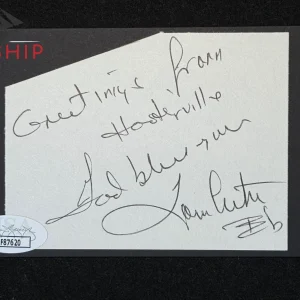 SHIP
Greetings from
Hooterville
God bless you
Tom Lester
Eb
F87620